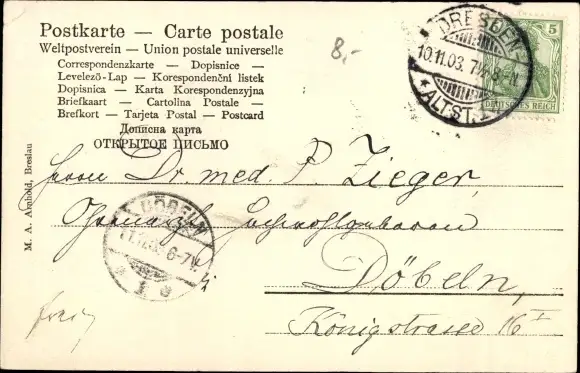 Postkarte — Carte postale
Weltpostverein — Union postale universelle
Correspondenzkarte — Dopisnice —
Levelező-Lap — Korespondenční listek
Dopisnica — Karta Korespondenzyjna
Briefkaart — Cartolina Postale —
Brefkort — Tarjeta Postal — Postcard
Дописна карта
ОТКРЫТОЕ ПИСЬМО
M. A. Arnhold, Breslau
8,-
DRESDEN
10.11.03. 7½8-N
* ALTST. 1
5
DEUTSCHES REICH
Herrn Dr. med. P. Zieger,
Döbeln,
Königstrasse 16 I
DÖBELN
11.11.03. 6-7V.
* 1 c